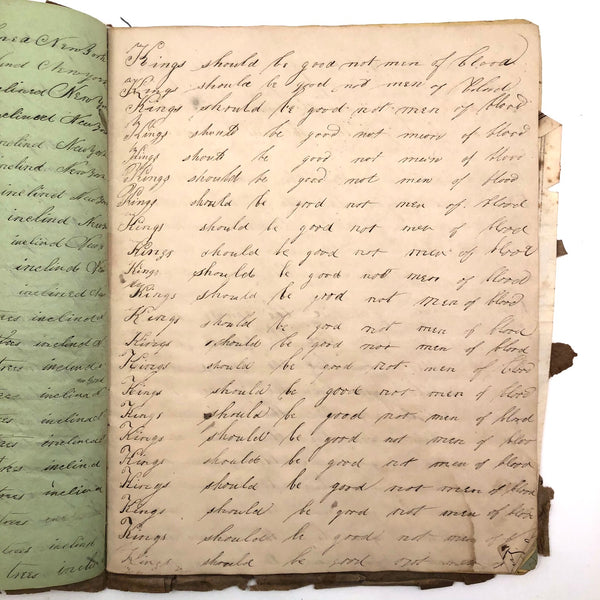 New York
New york
clined New Y
inclined New York
inclind New York
inclind New York
inclind New
inclind New
inclind New
inclind
inclined
inclind
inclind
inclind
inclind
inclind
inclined
trees inclind
inclind
inclind
trees inclind
trees
Kings should be good not men of blood
Kings should be good not men of blood
Kings should be good not men of blood
Kings shoutt be good not mean of blood
Kings shoutt be good not men of blood
Kings shouldt be good not men of blood
Kings should be good not men of blood
Kings should be good not men of blood
Kings should be good not men of blood
Kings should be good not men of blood
Kings should be good not men of blood
Kings should be good not men of blood
Kings should be good not men of blood
Kings should be good not men of blood
Kings should be good not men of blood
Kings should be good not men of blood
Kings should be good not men of blood
Kings should be good not men of blood
Kings should be good not men of blood
Kings should be good not men of blood
Kings should be good not men of
Kings should be good not men